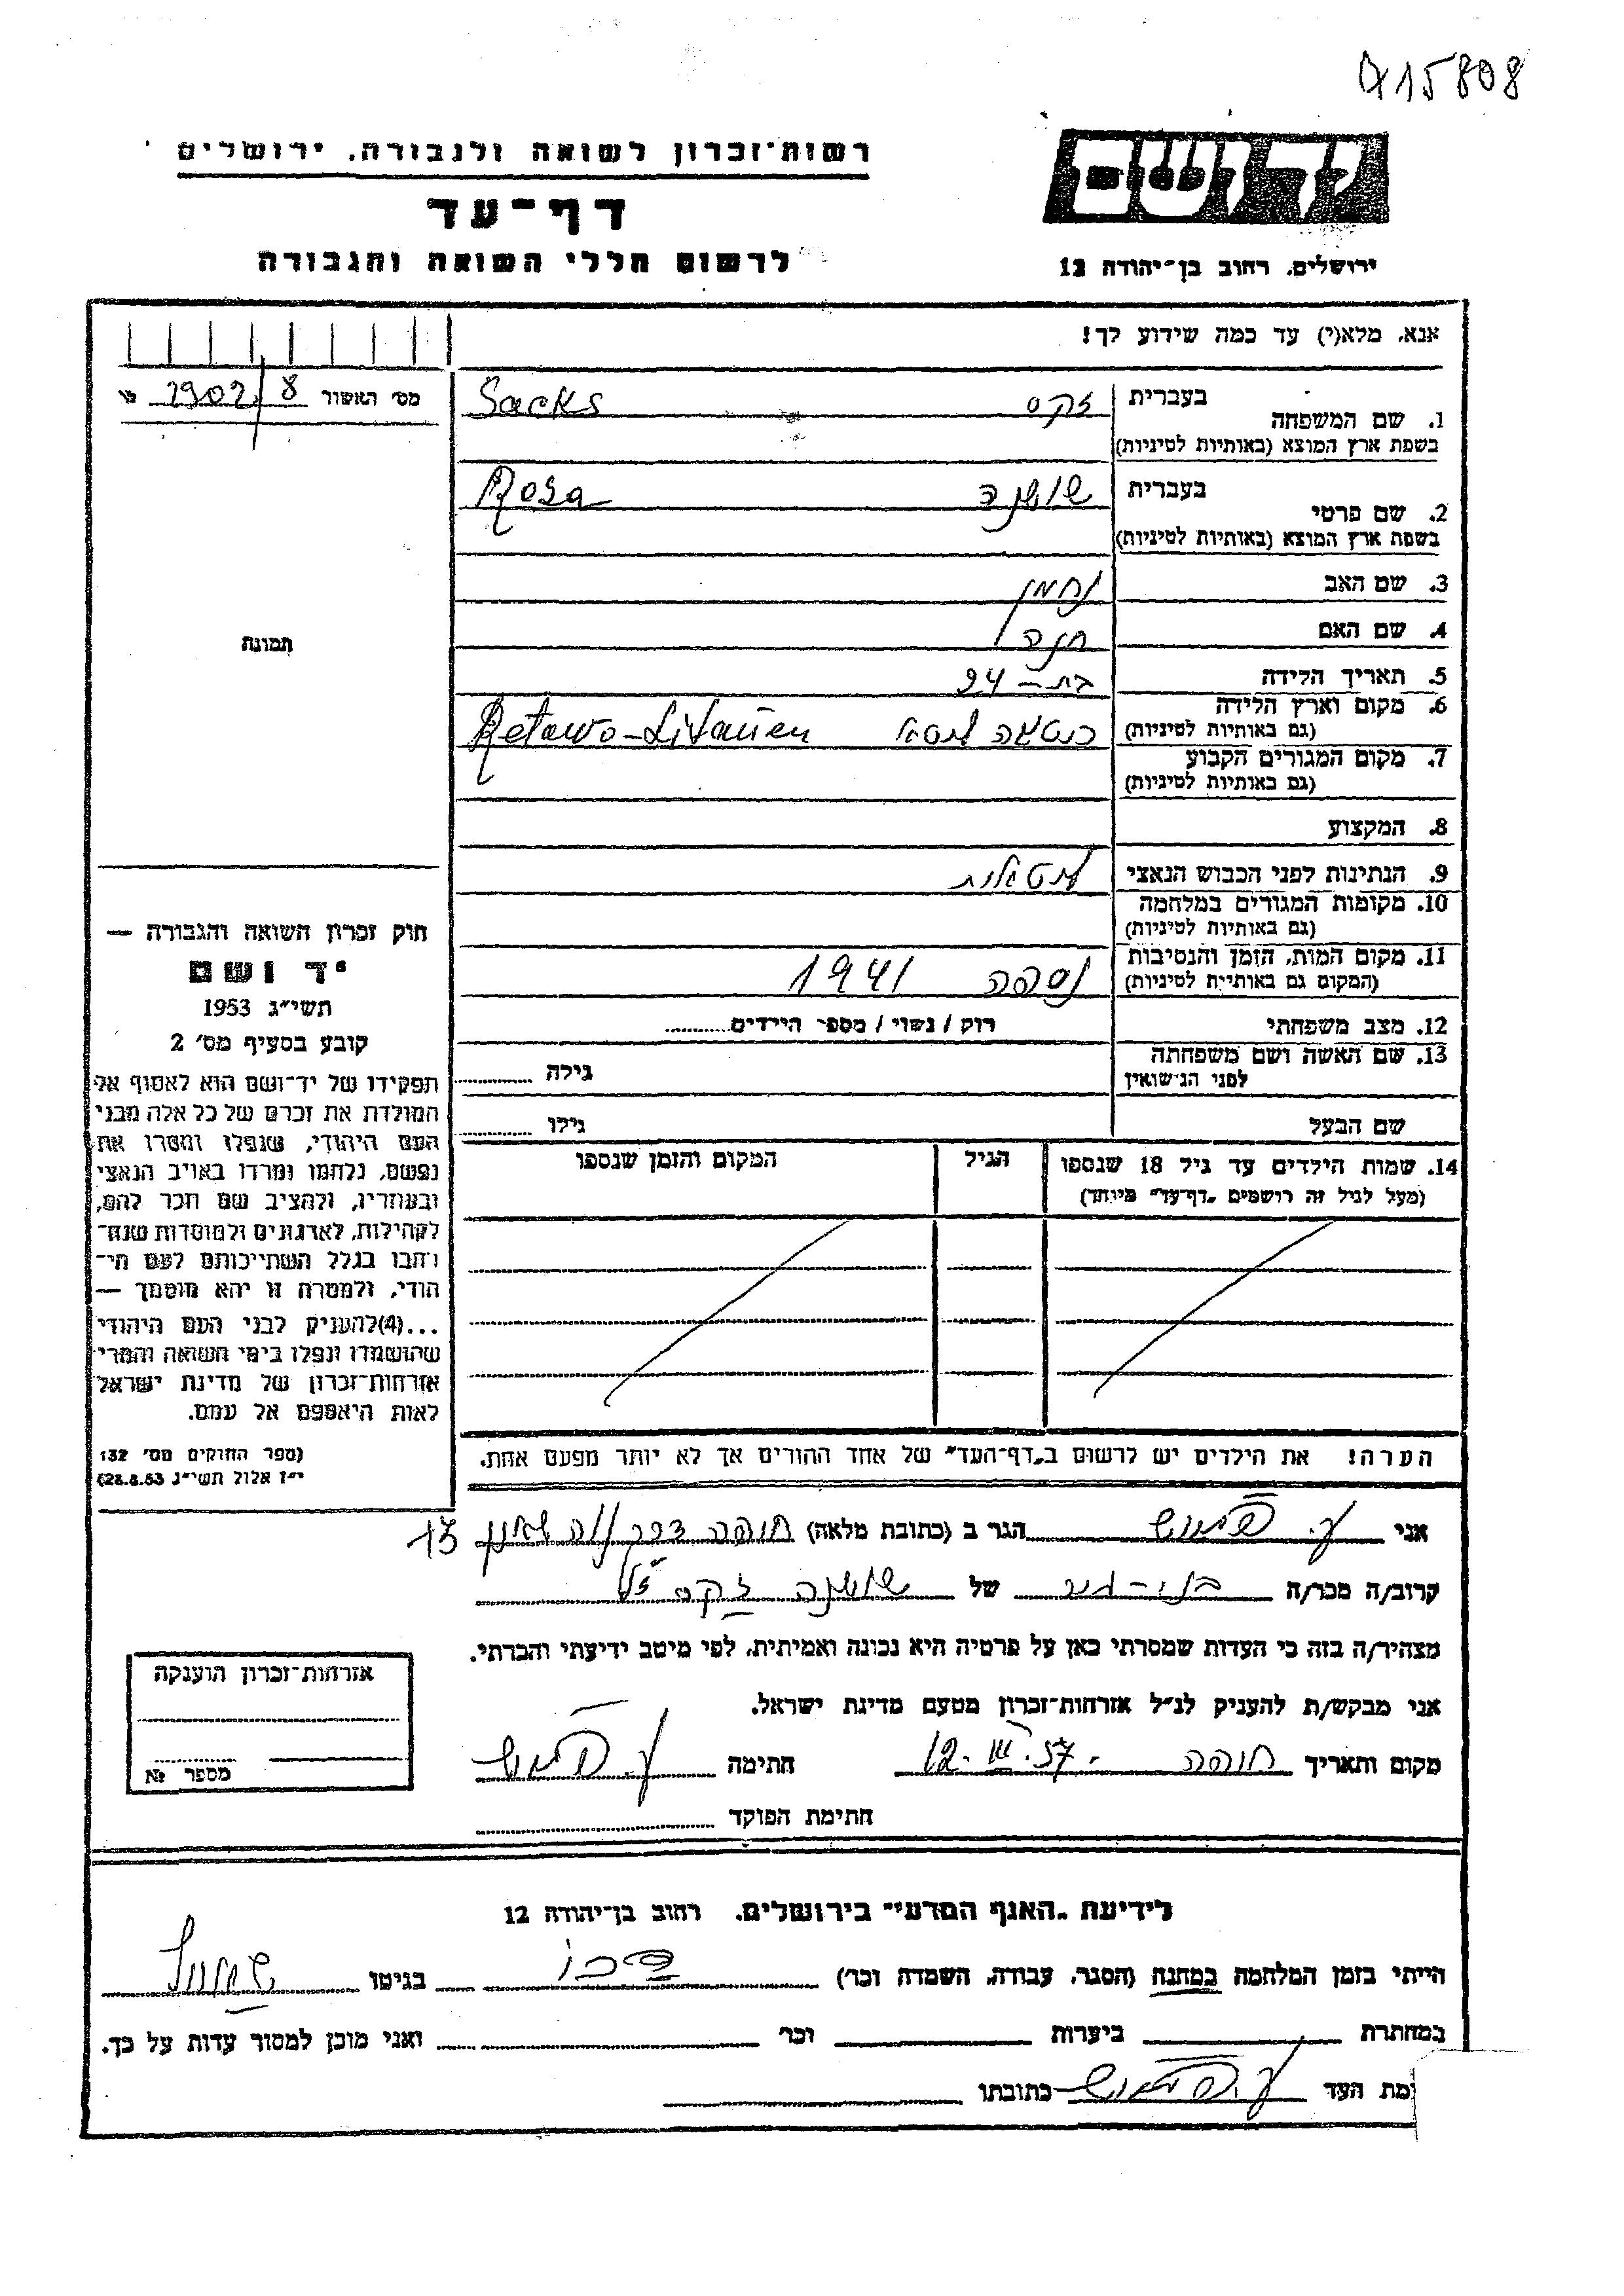 15808
רשות־זכרון לשואה ולגבורה, ירושלים
יד ושם
דף־עד
לרשום חללי השואה והגבורה
ירושלים, רחוב בן־יהודה 12
אנא, מלא(י) עד כמה שידוע לך!
מס׳ האשור 1902/8
1. שם המשפחה
בעברית זקס Sacks
בשפת ארץ המוצא (באותיות לטיניות)
2. שם פרטי
בעברית שושנה Rosa
בשפת ארץ המוצא (באותיות לטיניות)
3. שם האב נחמן
4. שם האם חנה
תמונה
5. תאריך הלידה בת – 24
6. מקום וארץ הלידה
(גם באותיות לטיניות) Retawo-Litauen
7. מקום המגורים הקבוע
(גם באותיות לטיניות)
8. המקצוע
9. הנתינות לפני הכבוש הנאצי ליטאית
10. מקומות המגורים במלחמה
(גם באותיות לטיניות)
11. מקום המות, הזמן והנסיבות נספה 1941
(המקום גם באותיות לטיניות)
12. מצב משפחתי רוק / נשוי / מספר הילדים
13. שם האשה ושם משפחתה
לפני הנישואין גילה
שם הבעל גילו
14. שמות הילדים עד גיל 18 שנספו הגיל המקום והזמן שנספו
(מעל לגיל זה רושמים „דף־עד״ מיוחד)
חוק זכרון השואה והגבורה —
יד ושם
תשי״ג 1953
קובע בסעיף מס׳ 2
תפקידו של יד־ושם הוא לאסוף אל
המולדת את זכרם של כל אלה מבני
העם היהודי, שנפלו ומסרו את
נפשם, נלחמו ומרדו באויב הנאצי
ובעוזריו, ולהציב שם וזכר להם,
לקהילות, לארגונים ולמוסדות שנח־
רבו בגלל השתייכותם לעם הי־
הודי, ולמטרה זו יהא מוסמך —
...(4)להעניק לבני העם היהודי
שהושמדו ונפלו בימי השואה והמרי
אזרחות־זכרון של מדינת ישראל
לאות היאספם אל עמם.
(ספר החוקים מס׳ 132
י״ז אלול תשי״ג 28.8.53)
הערה! את הילדים יש לרשום ב„דף־העד״ של אחד ההורים אך לא יותר מפעם אחת.
אני הגר ב (כתובת מלאה) חיפה דרך 13
קרוב/ה מכר/ה של שושנה זקס ז״ל
מצהיר/ה בזה כי העדות שמסרתי כאן על פרטיה היא נכונה ואמיתית, לפי מיטב ידיעתי והכרתי.
אני מבקש/ת להעניק לנ״ל אזרחות־זכרון מטעם מדינת ישראל.
מקום ותאריך חיפה 12. III. 57 חתימה
חתימת הפוקד
אזרחות־זכרון הוענקה
מספר №
לידיעת „האגף המדעי״ בירושלים, רחוב בן־יהודה 12
הייתי בזמן המלחמה במחנה (הסגר, עבודה, השמדה וכו׳) דכאו בגיטו
במחתרת ביערות וכו׳ ואני מוכן למסור עדות על כך.
מת העד כתובתו